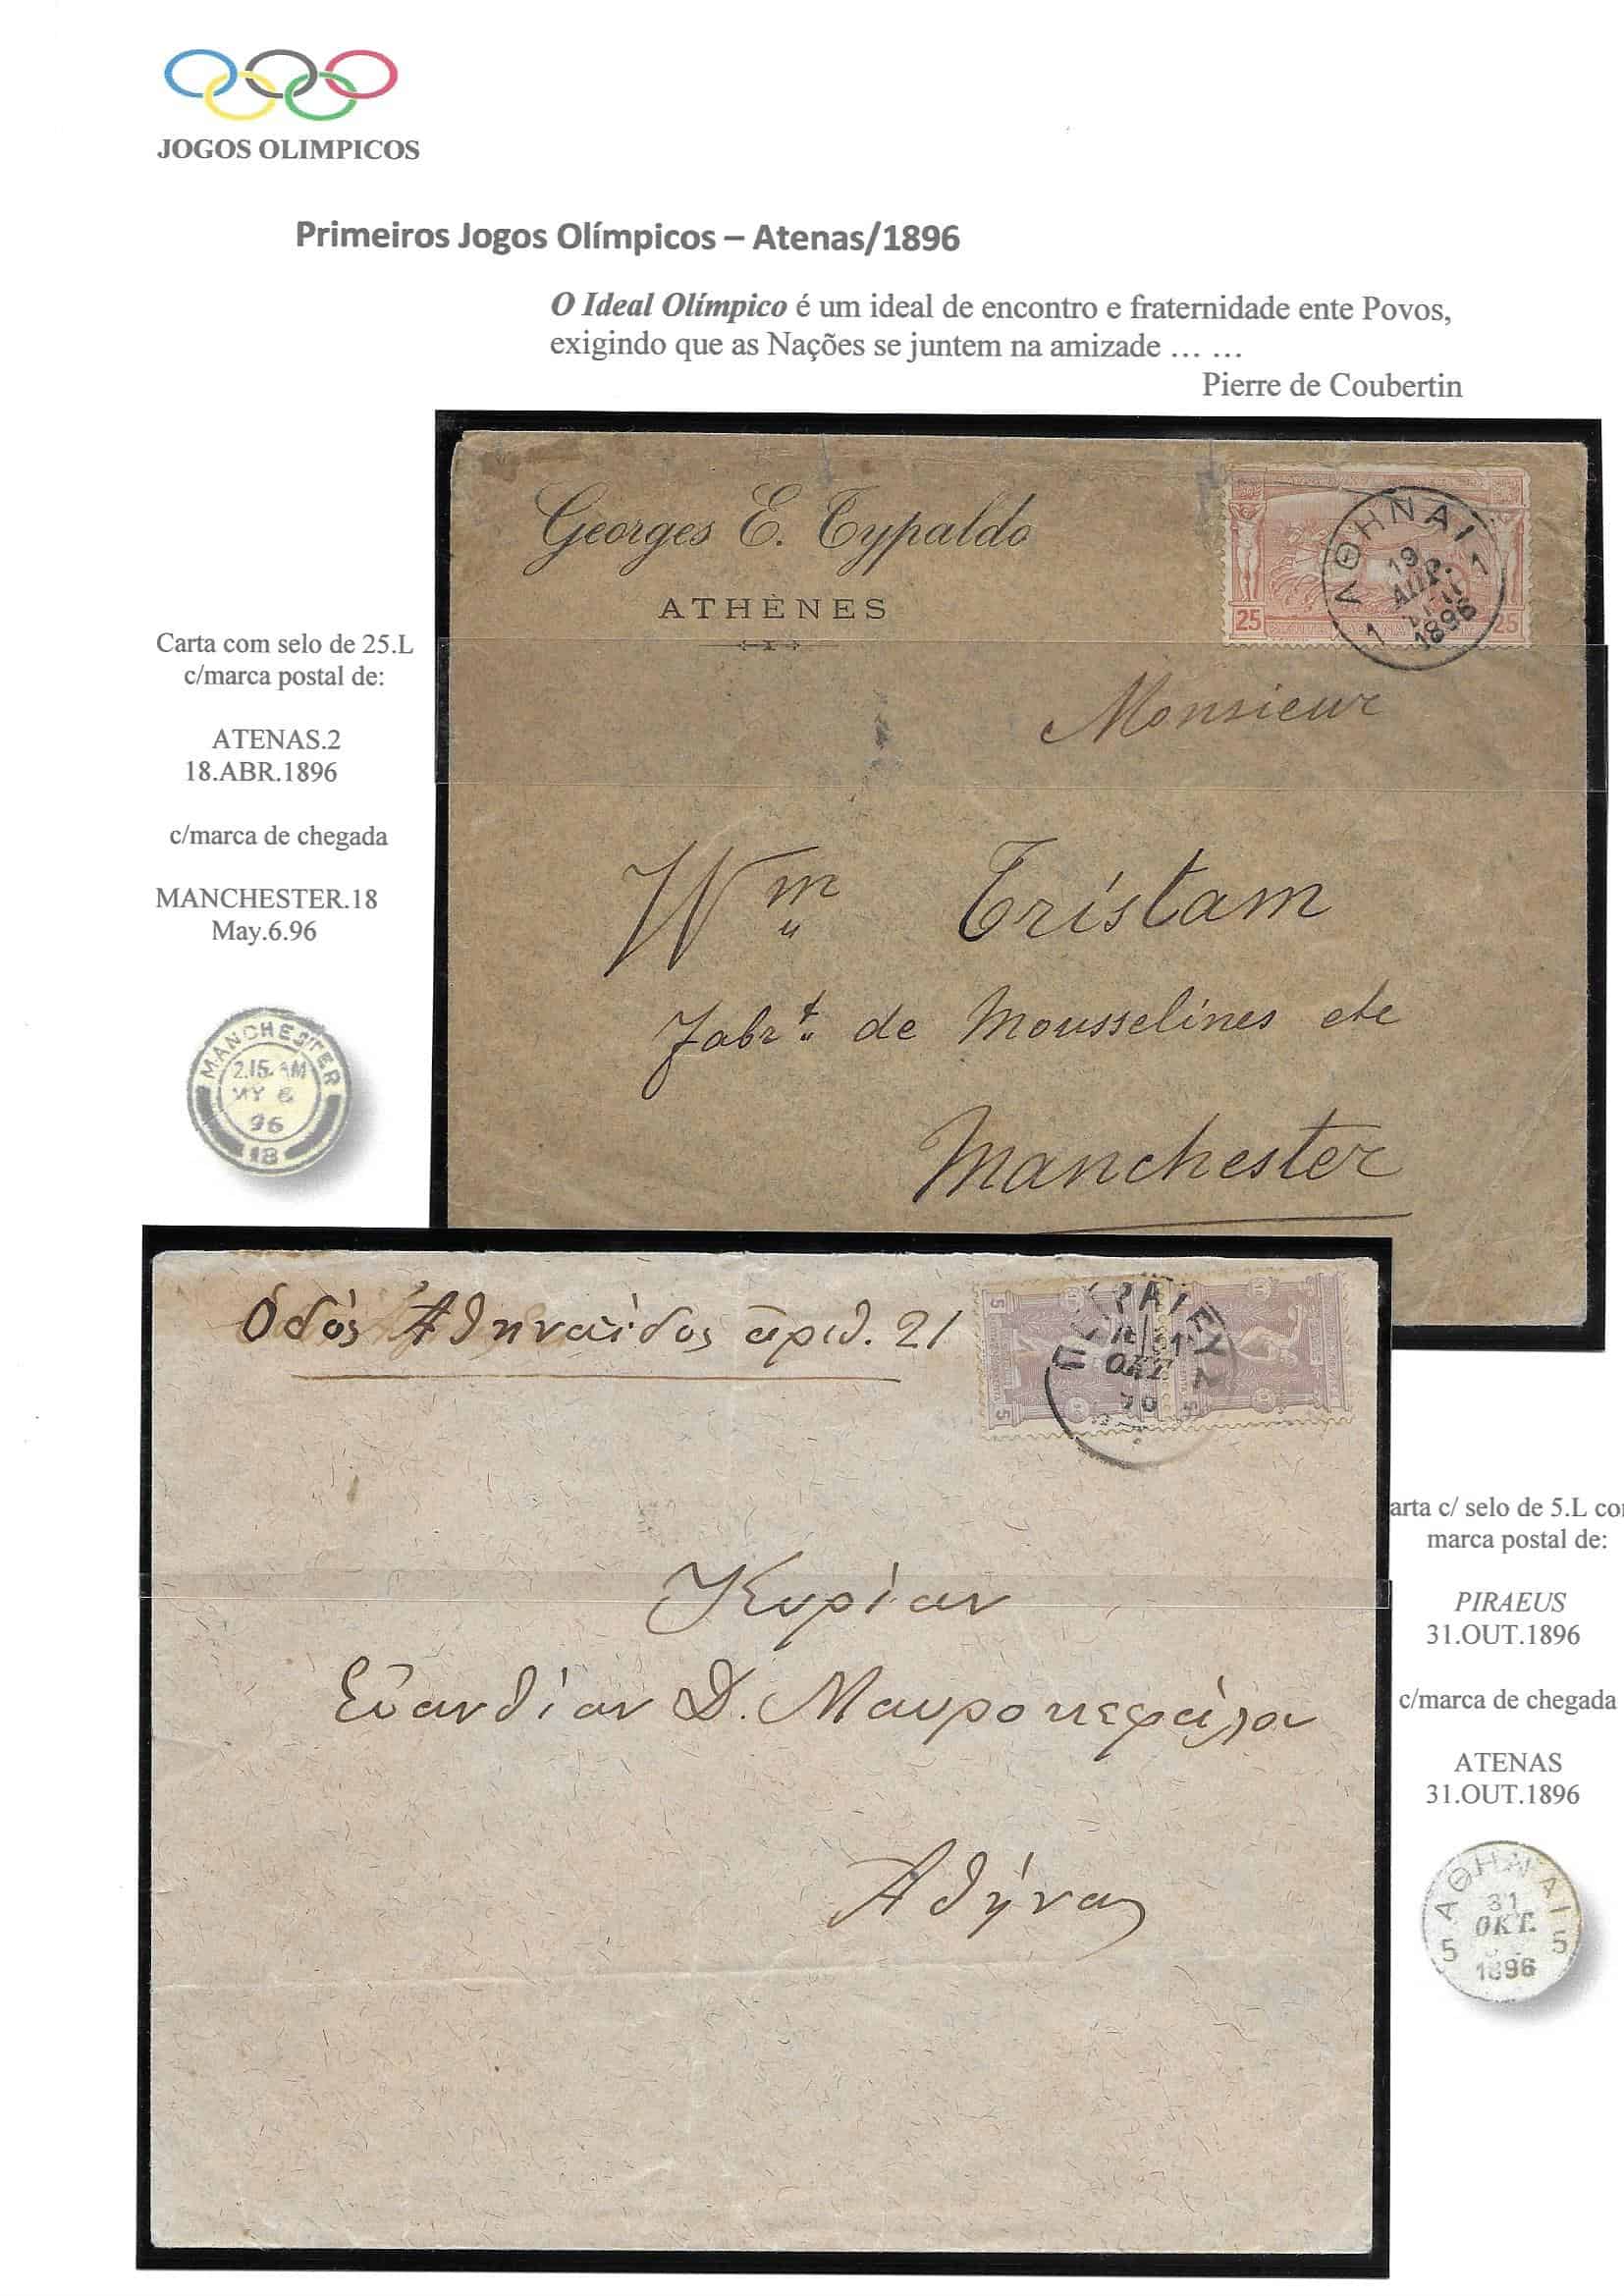 JOGOS OLIMPICOS
Primeiros Jogos Olímpicos – Atenas/1896
O Ideal Olímpico é um ideal de encontro e fraternidade ente Povos,
exigindo que as Nações se juntem na amizade … …
Pierre de Coubertin
Georges E. Typaldo
ATHÈNES
25
25
ΑΘΗΝΑΙ
19
ΑΠΡ.
1896
1
1
Carta com selo de 25.L
c/marca postal de:
ATENAS.2
18.ABR.1896
c/marca de chegada
MANCHESTER.18
May.6.96
MANCHESTER
2.15 AM
MY 6
96
18
Monsieur
Wm Tristam
Fabrt de Mousselines etc
Manchester
Ὁδὸς Ἀθηναΐδος ἀριθ. 21
5
5
ΟΚΤ
Κυρίαν
Εὐανθίαν Δ. Μαυροκεφάλου
Ἀθήνας
arta c/ selo de 5.L co
marca postal de:
PIRAEUS
31.OUT.1896
c/marca de chegada
ATENAS
31.OUT.1896
ΑΘΗΝΑΙ
31
ΟΚΤ.
5
5
1896